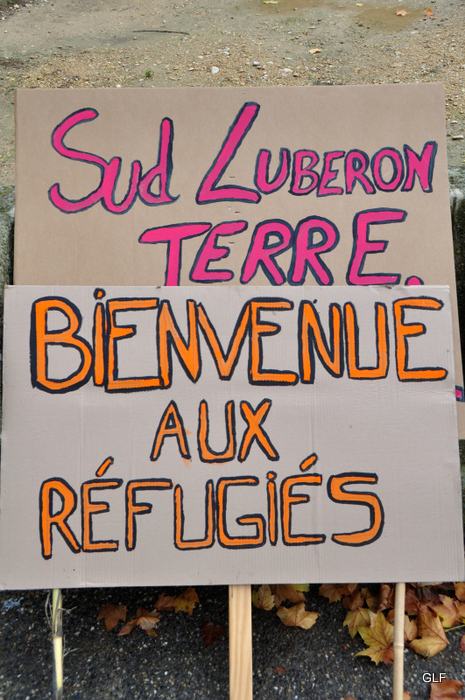 Sud LUBERON
TERRE.
BiENVENUE
AUX
RÉFUGiÉS
GLF